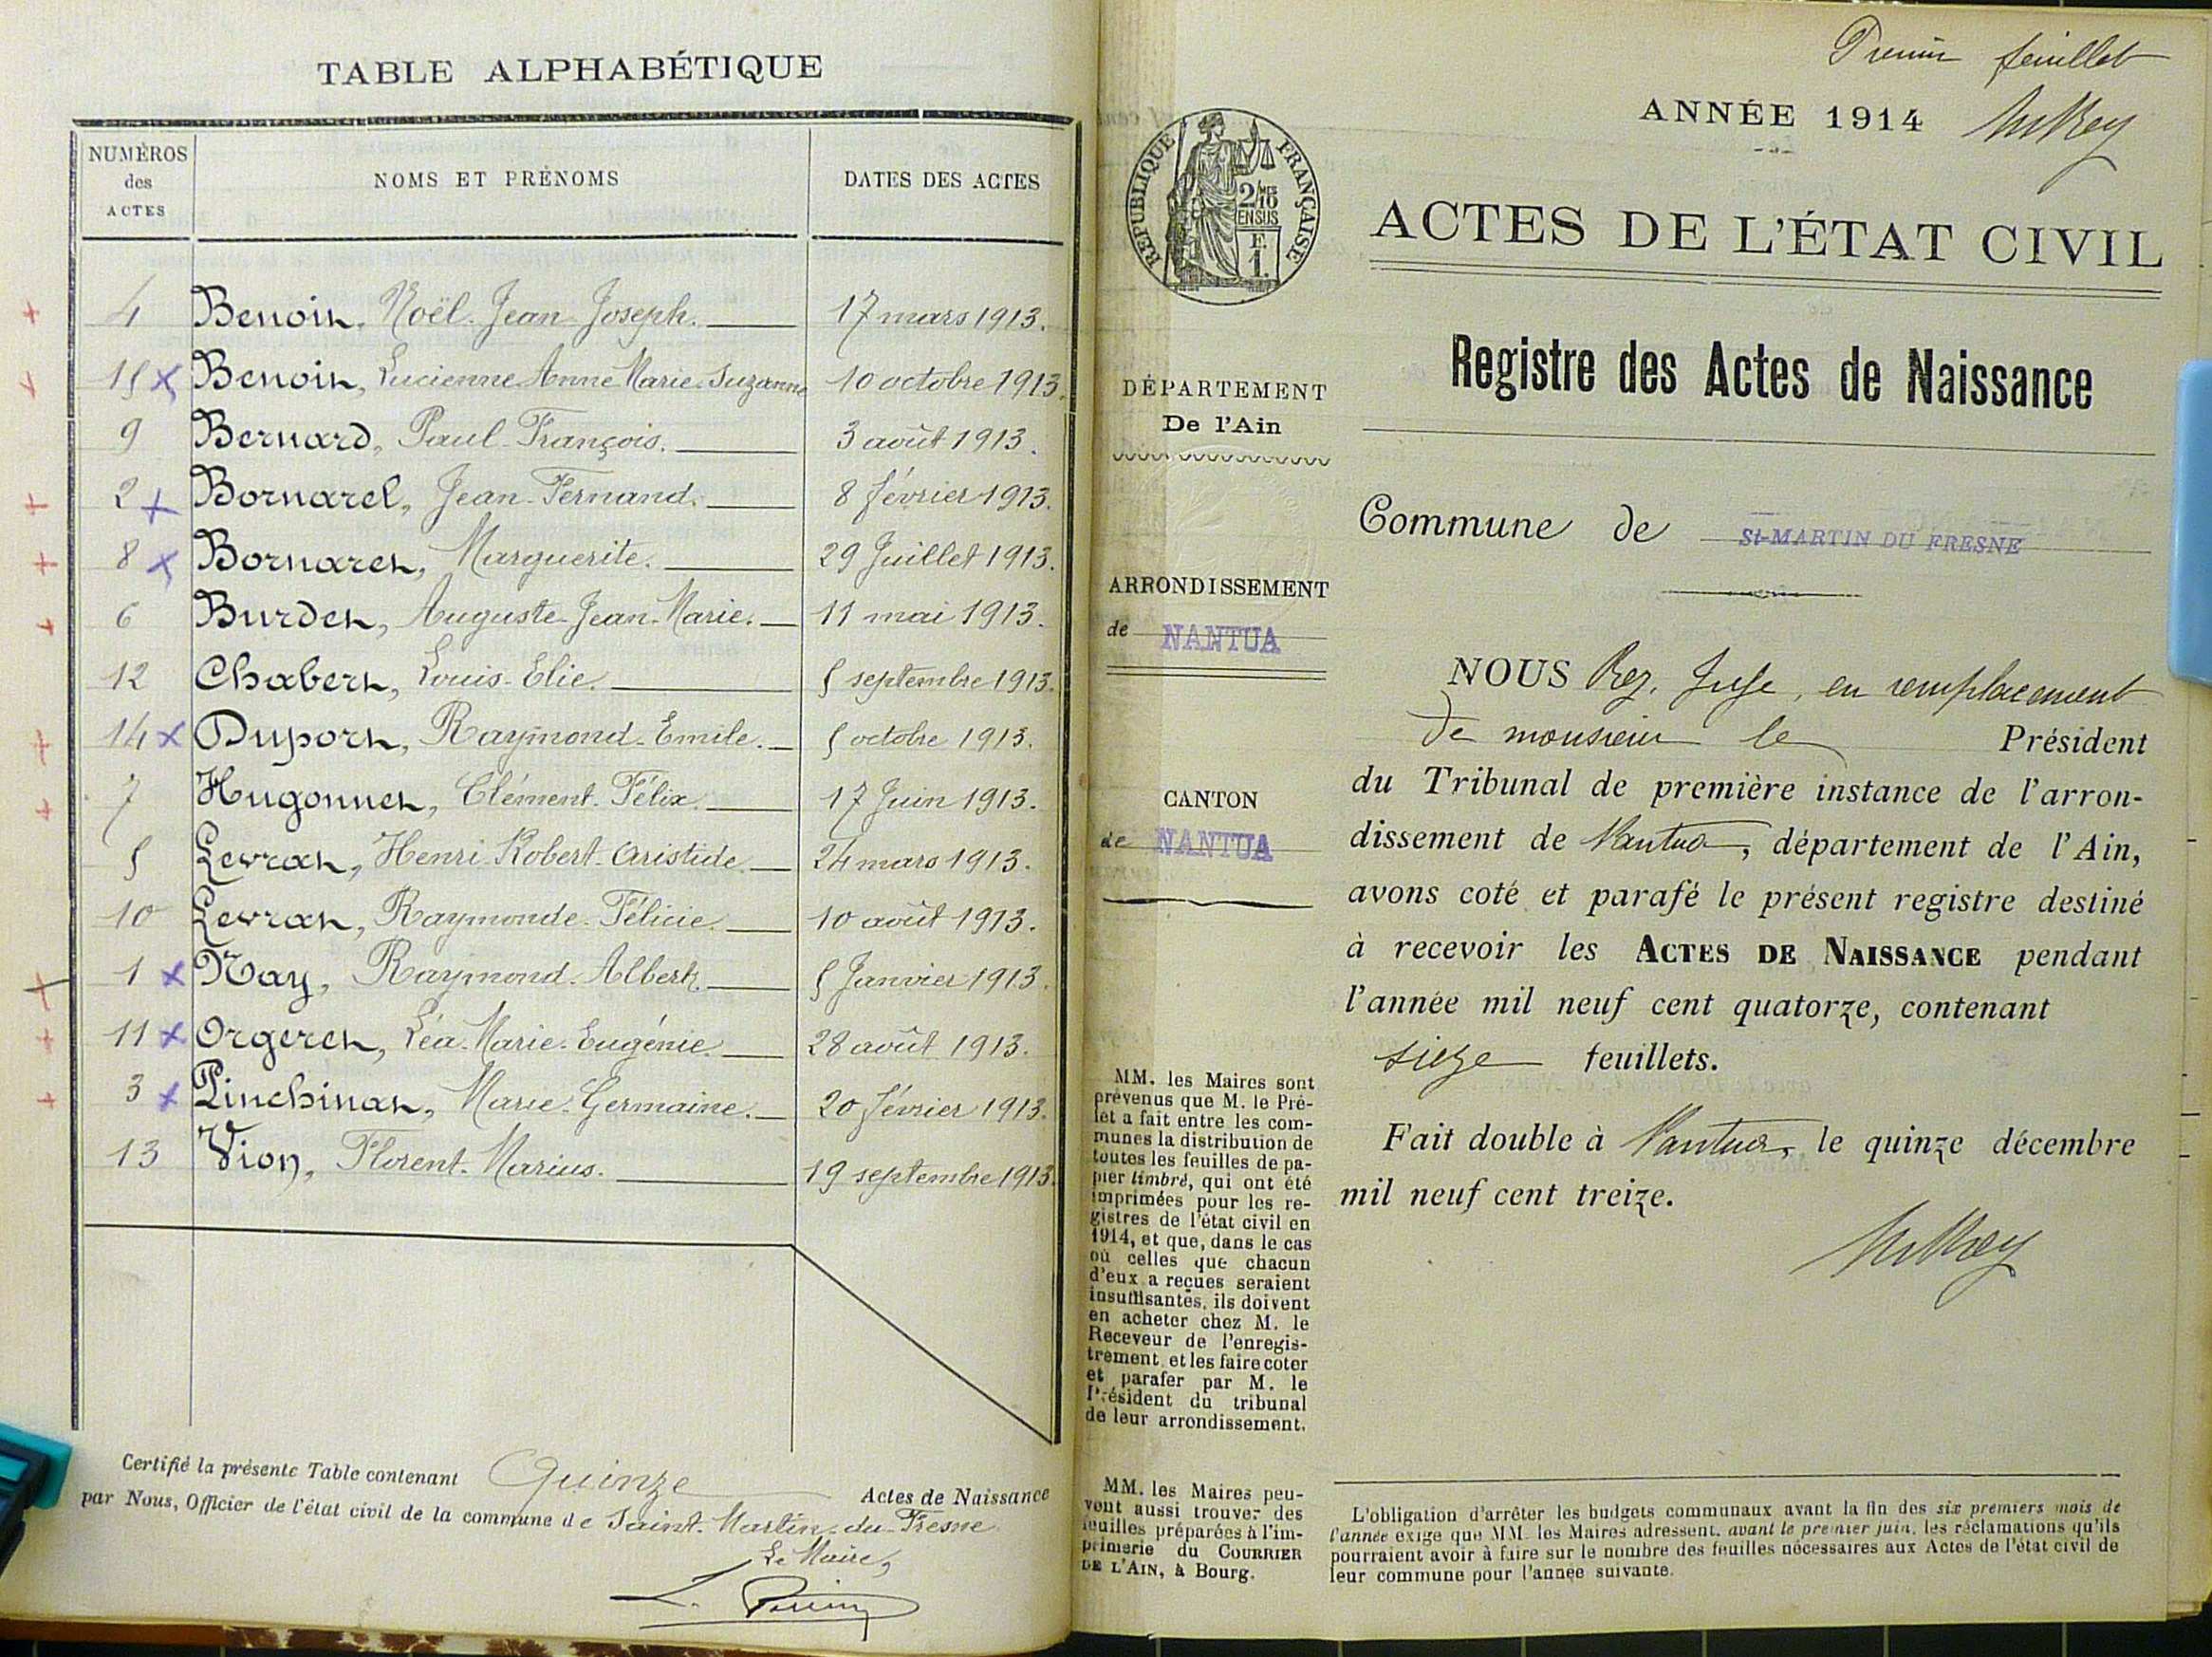 TABLE ALPHABÉTIQUE
NUMÉROS des ACTES
NOMS ET PRÉNOMS
DATES DES ACTES
4 Benoit, Noël Jean Joseph. 17 mars 1913.
15 Benoit, Lucienne Anne Marie Suzanne 10 octobre 1913.
9 Bernard, Paul-François. 3 août 1913.
2 Bornarel, Jean-Fernand. 8 février 1913.
8 Bornaret, Marguerite. 29 Juillet 1913.
6 Burdet, Auguste-Jean-Marie. 11 mai 1913.
12 Chabert, Louis-Elie. 5 septembre 1913.
14 Duport, Raymond-Emile. 5 octobre 1913.
7 Hugonnet, Clément-Félix. 17 Juin 1913.
5 Levrat, Henri-Robert-Aristide. 24 mars 1913.
10 Levrat, Raymonde-Félicie. 10 août 1913.
1 Nay, Raymond-Albert. 5 Janvier 1913.
11 Orgeret, Léa-Marie-Eugénie. 28 août 1913.
3 Pinchinat, Marie-Germaine. 20 février 1913.
13 Vion, Florent-Marius. 19 septembre 1913.
Certifié la présente Table contenant Quinze Actes de Naissance
par Nous, Officier de l'état civil de la commune de Saint-Martin-du-Fresne
Le Maire,
Premier feuillet
ANNÉE 1914
RÉPUBLIQUE FRANÇAISE
2/10 EN SUS
F. 1.
ACTES DE L'ÉTAT CIVIL
Registre des Actes de Naissance
DÉPARTEMENT
De l'Ain
Commune de St-MARTIN DU FRESNE
ARRONDISSEMENT
de NANTUA
CANTON
de NANTUA
NOUS Rey, Juge, en remplacement
de monsieur le Président
du Tribunal de première instance de l'arron-
dissement de Nantua, département de l'Ain,
avons coté et parafé le présent registre destiné
à recevoir les ACTES DE NAISSANCE pendant
l'année mil neuf cent quatorze, contenant
seize feuillets.
Fait double à Nantua, le quinze décembre
mil neuf cent treize.
MM. les Maires sont
prévenus que M. le Pré-
fet a fait entre les com-
munes la distribution de
toutes les feuilles de pa-
pier timbré, qui ont été
imprimées pour les re-
gistres de l'état civil en
1914, et que, dans le cas
où celles que chacun
d'eux a reçues seraient
insuffisantes, ils doivent
en acheter chez M. le
Receveur de l'enregis-
trement et les faire coter
et parafer par M. le
Président du tribunal
de leur arrondissement.
MM. les Maires peu-
vent aussi trouver des
feuilles préparées à l'im-
primerie du COURRIER
DE L'AIN, à Bourg.
L'obligation d'arrêter les budgets communaux avant la fin des six premiers mois de
l'année exige que MM. les Maires adressent, avant le premier juin, les réclamations qu'ils
pourraient avoir à faire sur le nombre des feuilles nécessaires aux Actes de l'état civil de
leur commune pour l'année suivante.